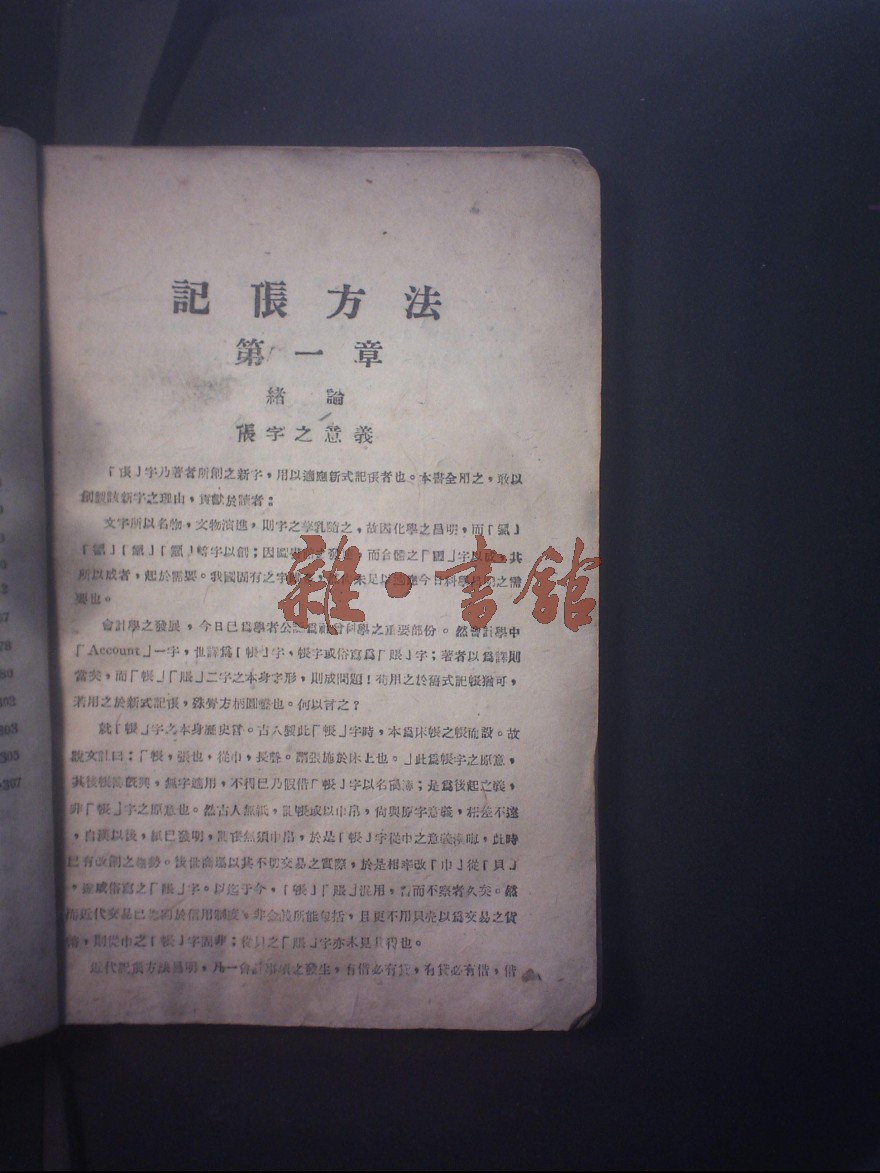 記倀方法
第一章
緒論
倀字之意義
「倀」字乃著者所創之新字，用以適應新式記倀者也。本書全用之，敢以
創製該新字之理由，貢獻於讀者：
文字所以名物，文物演進，則字之孳乳隨之，故因化學之昌明，而「氯」
等字以創；因之發，而之「」字以成，其
所以成者，起於需要。我國固有之字未足以適應今日科學之需
要也。
會計學之發展，今日已爲學者公認爲社會科學之重要部份。然會計學中
「Account」一字，世譯爲「帳」字，帳字或俗寫爲「賬」字；著者以爲譯則
當矣，而「帳」「賬」二字之本身字形，則成問題！苟用之於舊式記帳猶可，
若用之於新式記倀，殊覺方枘圓鑿也。何以言之？
就「帳」字之本身歷史言。古人製此「帳」字時，本爲床帳之帳而設。故
說文註曰：「帳，張也，從巾，長聲。謂張施於床上也。」此爲帳字之原意，
其後帳簿旣興，無字適用，不得已乃假借「帳」字以名帳簿；是爲後起之義，
非「帳」字之原意也。然古人無紙，記帳或以巾帛，尙與原字意義，相差不遠
，自漢以後，紙已發明，記帳無須巾帛，於是「帳」字從巾之意義漸晦，此時
已有改創之趨勢。後世商場以其不切交易之實際，於是相率改「巾」從「貝」
，遂成俗寫之「賬」字。以迄于今，「帳」「賬」混用，習而不察者久矣。然
而近代交易已趨向於信用制度，非金錢所能包括，且更不用貝壳以爲交易之貨
幣，則從巾之「帳」字固非；從貝之「賬」字亦未見其得也。
近代記倀方法昌明，凡一會計事項之發生，有借必有貸，有貸必有借，借
303
305
307
雜·書舘